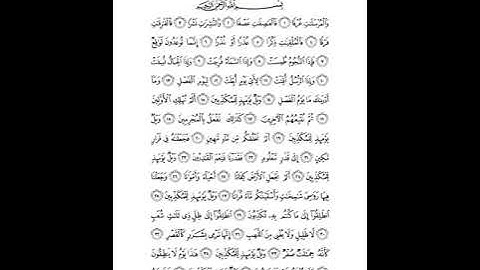 بِسْمِ اللَّهِ الرَّحْمَٰنِ الرَّحِيمِ
وَالْمُرْسَلَٰتِ عُرْفًا ١ فَالْعَٰصِفَٰتِ عَصْفًا ٢ وَالنَّٰشِرَٰتِ نَشْرًا ٣ فَالْفَٰرِقَٰتِ
فَرْقًا ٤ فَالْمُلْقِيَٰتِ ذِكْرًا ٥ عُذْرًا أَوْ نُذْرًا ٦ إِنَّمَا تُوعَدُونَ لَوَٰقِعٌ
٧ فَإِذَا النُّجُومُ طُمِسَتْ ٨ وَإِذَا السَّمَآءُ فُرِجَتْ ٩ وَإِذَا الْجِبَالُ نُسِفَتْ
١٠ وَإِذَا الرُّسُلُ أُقِّتَتْ ١١ لِأَيِّ يَوْمٍ أُجِّلَتْ ١٢ لِيَوْمِ الْفَصْلِ ١٣ وَمَآ
أَدْرَىٰكَ مَا يَوْمُ الْفَصْلِ ١٤ وَيْلٌ يَوْمَئِذٍ لِّلْمُكَذِّبِينَ ١٥ أَلَمْ نُهْلِكِ الْأَوَّلِينَ
١٦ ثُمَّ نُتْبِعُهُمُ الْءَاخِرِينَ ١٧ كَذَٰلِكَ نَفْعَلُ بِالْمُجْرِمِينَ ١٨ وَيْلٌ
يَوْمَئِذٍ لِّلْمُكَذِّبِينَ ١٩ أَلَمْ نَخْلُقكُّم مِّن مَّآءٍ مَّهِينٍ ٢٠ فَجَعَلْنَٰهُ فِي قَرَارٍ
مَّكِينٍ ٢١ إِلَىٰ قَدَرٍ مَّعْلُومٍ ٢٢ فَقَدَرْنَا فَنِعْمَ الْقَٰدِرُونَ ٢٣ وَيْلٌ يَوْمَئِذٍ
لِّلْمُكَذِّبِينَ ٢٤ أَلَمْ نَجْعَلِ الْأَرْضَ كِفَاتًا ٢٥ أَحْيَآءً وَأَمْوَٰتًا ٢٦ وَجَعَلْنَا
فِيهَا رَوَٰسِيَ شَٰمِخَٰتٍ وَأَسْقَيْنَٰكُم مَّآءً فُرَاتًا ٢٧ وَيْلٌ يَوْمَئِذٍ لِّلْمُكَذِّبِينَ ٢٨
انطَلِقُوٓا إِلَىٰ مَا كُنتُم بِهِ تُكَذِّبُونَ ٢٩ انطَلِقُوٓا إِلَىٰ ظِلٍّ ذِي ثَلَٰثِ شُعَبٍ
٣٠ لَّا ظَلِيلٍ وَلَا يُغْنِي مِنَ اللَّهَبِ ٣١ إِنَّهَا تَرْمِي بِشَرَرٍ كَالْقَصْرِ ٣٢
كَأَنَّهُ جِمَٰلَتٌ صُفْرٌ ٣٣ وَيْلٌ يَوْمَئِذٍ لِّلْمُكَذِّبِينَ ٣٤ هَٰذَا يَوْمُ لَا يَنطِقُونَ